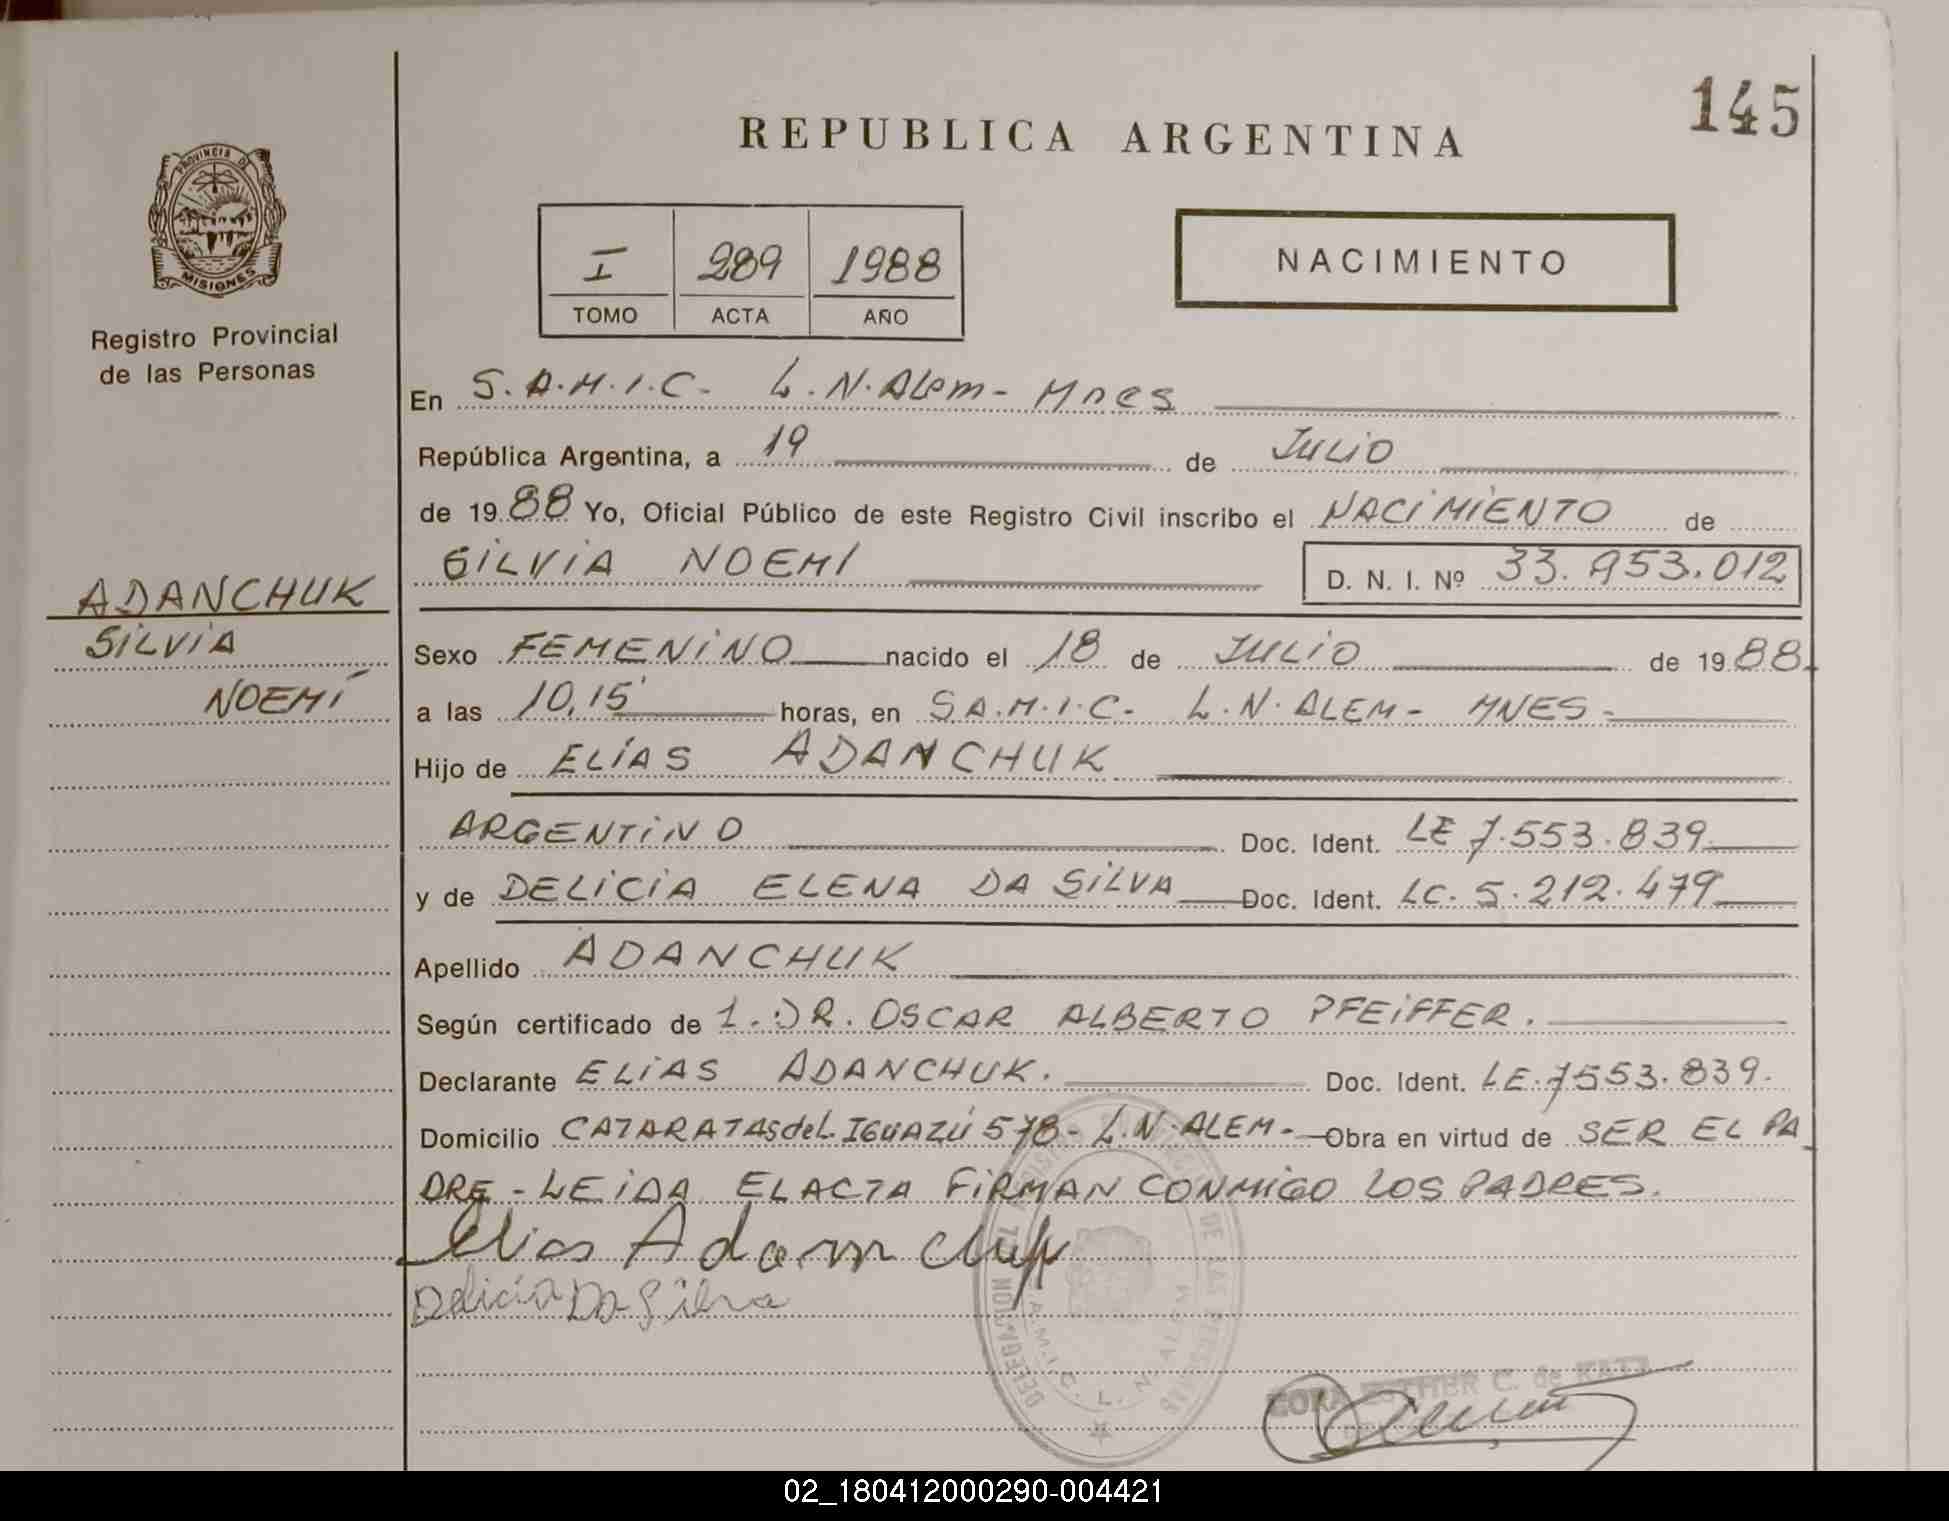 145
REPUBLICA ARGENTINA
PROVINCIA DE
MISIONES
Registro Provincial
de las Personas
I 289 1988
TOMO ACTA AÑO
NACIMIENTO
En S.A.M.I.C- L.N.Alem- Mnes
República Argentina, a 19 de Julio
de 1988 Yo, Oficial Público de este Registro Civil inscribo el NACIMIENTO de
SILVIA NOEMI D. N. I. Nº 33.953.012
ADANCHUK
SILVIA
NOEMÍ
Sexo FEMENINO nacido el 18 de JULIO de 1988.
a las 10,15' horas, en S.A.M.I.C- L.N.ALEM- MNES-
Hijo de ELÍAS ADANCHUK
ARGENTINO Doc. Ident. LE 7.553.839.
y de DELICIA ELENA DA SILVA Doc. Ident. LC. 5.212.479
Apellido ADANCHUK
Según certificado de 1. DR. OSCAR ALBERTO PFEIFFER.
Declarante ELIAS ADANCHUK. Doc. Ident. LE.7553.839.
Domicilio CATARATAS del IGUAZÚ 578- L.N.ALEM- Obra en virtud de SER EL PA
DRE - LEIDA EL ACTA FIRMAN CONMIGO LOS PADRES.
Elias Adamchuk
Delicia Da Silva
DE LAS PERSONAS
DELEGACION
S.A.M.I.C. L. N. ALEM
ESTHER C. de KATZ
02_180412000290-004421